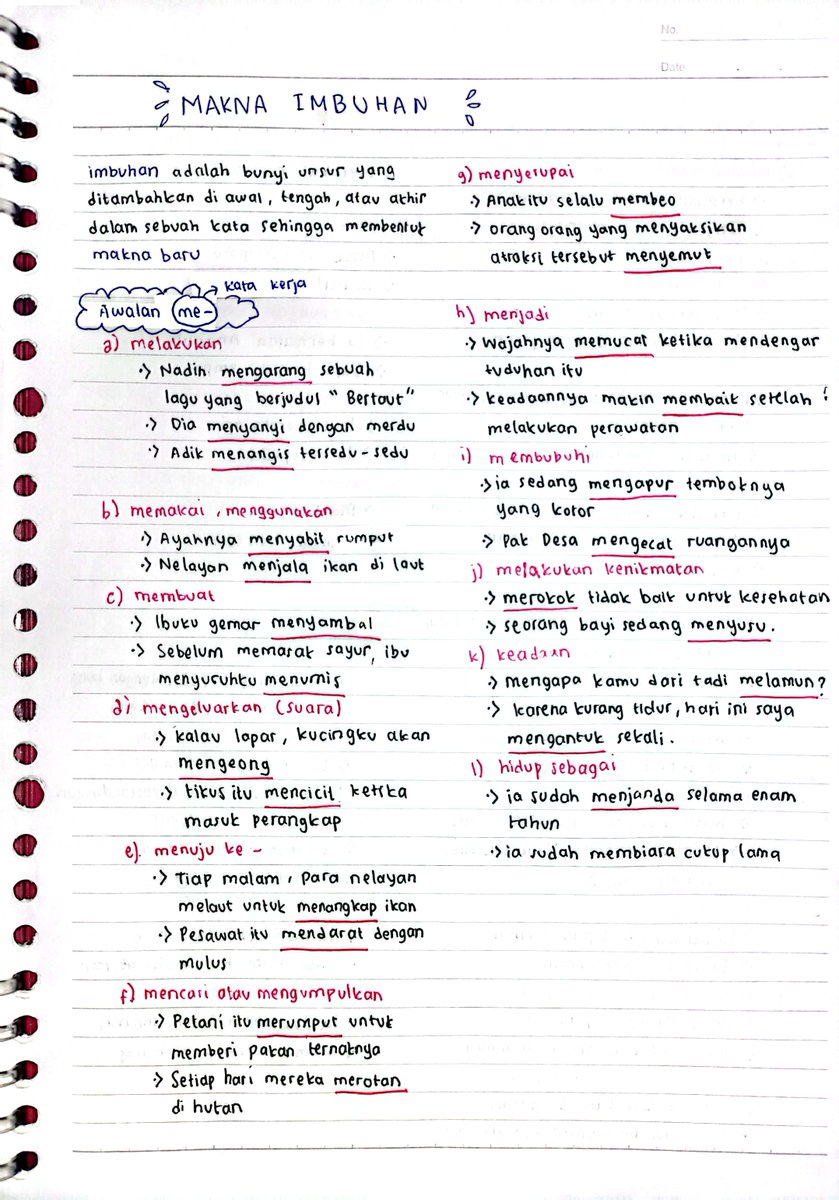 No.
Date
MAKNA IMBUHAN
imbuhan adalah bunyi unsur yang
ditambahkan di awal, tengah, atau akhir
dalam sebuah kata sehingga membentuk
makna baru
kata kerja
Awalan me-
a) melakukan
Nadin mengarang sebuah
lagu yang berjudul "Bertaut"
Dia menyanyi dengan merdu
Adik menangis tersedu-sedu
b) memakai, menggunakan
Ayahnya menyabit rumput
Nelayan menjala ikan di laut
c) membuat
Ibuku gemar menyambal
Sebelum memasak sayur, ibu
menyuruhku menumis
d) mengeluarkan (suara)
kalau lapar, kucingku akan
mengeong
tikus itu mencicit ketika
masuk perangkap
e). menuju ke -
Tiap malam, para nelayan
melaut untuk menangkap ikan
Pesawat itu mendarat dengan
mulus
f) mencari atau mengumpulkan
Petani itu merumput untuk
memberi pakan ternaknya
Setiap hari mereka merotan
di hutan
g) menyerupai
Anak itu selalu membeo
orang orang yang menyaksikan
atraksi tersebut menyemut
h) menjadi
Wajahnya memucat ketika mendengar
tuduhan itu
keadaannya makin membaik setelah
melakukan perawatan
i) membubuhi
ia sedang mengapur temboknya
yang kotor
Pak Desa mengecat ruangannya
j) melakukan kenikmatan
merokok tidak baik untuk kesehatan
seorang bayi sedang menyusu.
k) keadaan
mengapa kamu dari tadi melamun?
karena kurang tidur, hari ini saya
mengantuk sekali.
l) hidup sebagai
ia sudah menjanda selama enam
tahun
ia sudah membiara cukup lama